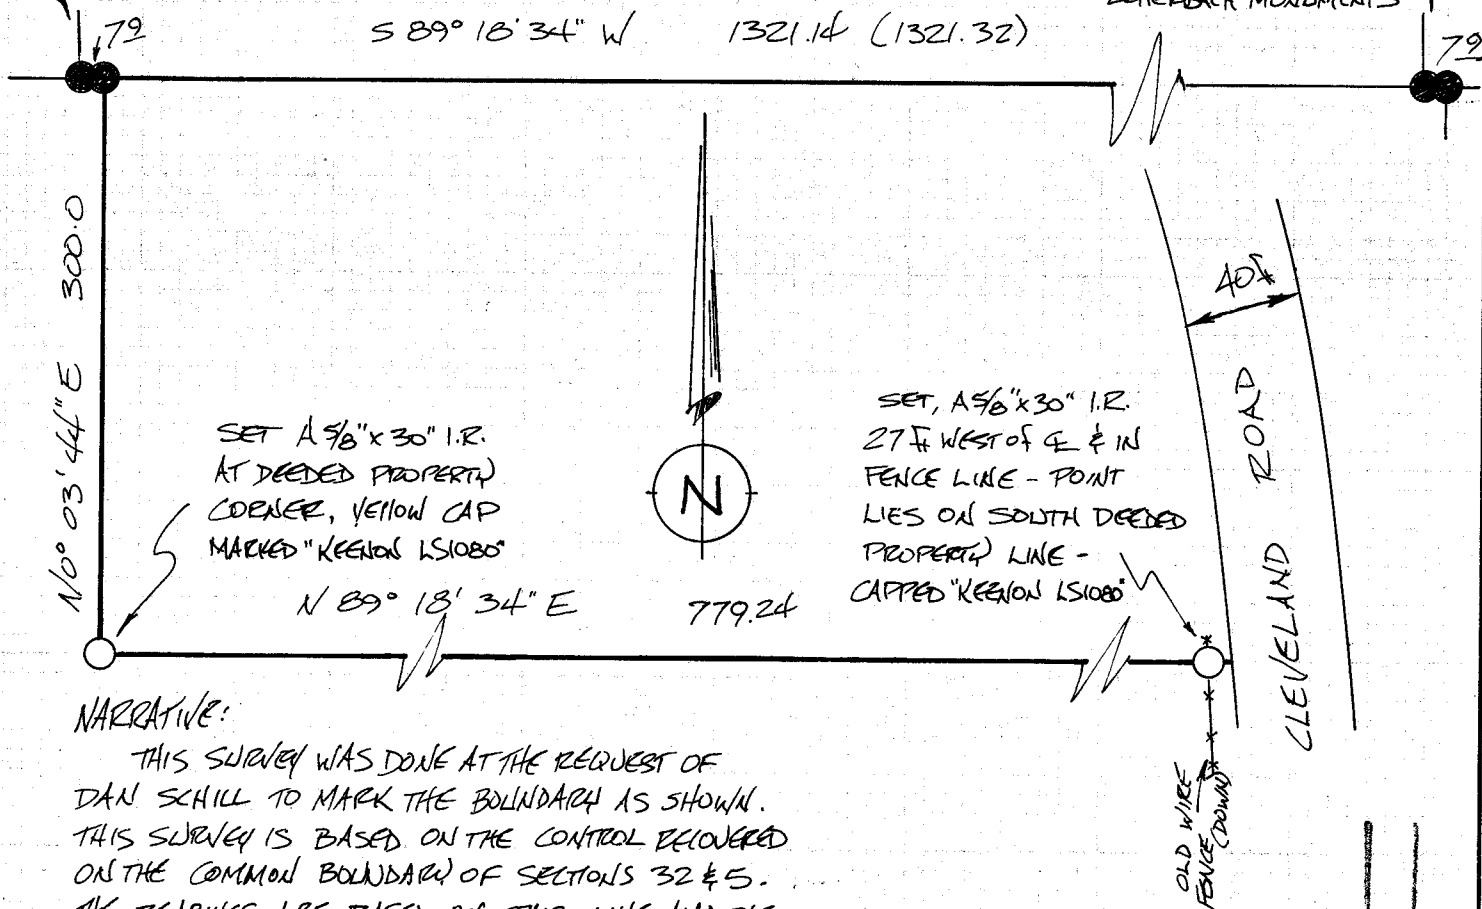 MONUMENTS
79
S 89° 18' 34" W 1321.14 (1321.32)
79
N 0° 03' 44" E 300.0
40±
CLEVELAND ROAD
SET A 5/8" x 30" I.R.
AT DEEDED PROPERTY
CORNER, YELLOW CAP
MARKED "KEENON LS1080"
N
SET, A 5/8" x 30" I.R.
27± WEST of ℄ & IN
FENCE LINE - POINT
LIES ON SOUTH DEEDED
PROPERTY LINE -
CAPPED "KEENON LS1080"
N 89° 18' 34" E 779.24
OLD WIRE
FENCE
(DOWN)
NARRATIVE:
THIS SURVEY WAS DONE AT THE REQUEST OF
DAN SCHILL TO MARK THE BOUNDARY AS SHOWN.
THIS SURVEY IS BASED ON THE CONTROL RECOVERED
ON THE COMMON BOUNDARY OF SECTIONS 32 & 5.